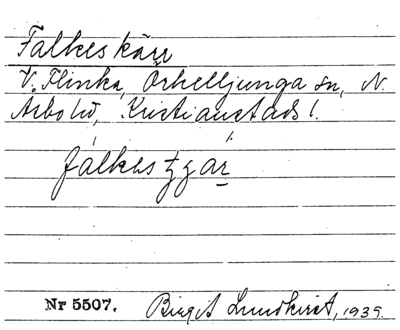 Falkeskärr
V. Flinka, Örkelljunga sn, N.
Åsbo hd, Kristianstads l.
Nr 5507. Birgit Lundkvist, 1939.